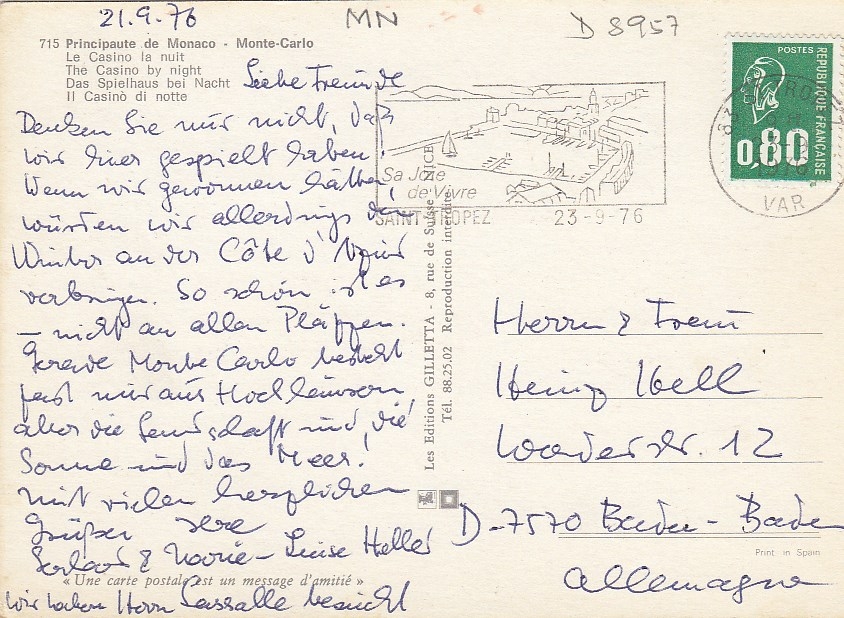 21.9.76
MN
D 8957
715 Principaute de Monaco - Monte-Carlo
Le Casino la nuit
The Casino by night
Das Spielhaus bei Nacht
Il Casinò di notte
Liebe Freunde
Denken Sie nur nicht, daß
wir hier gespielt haben!
Wenn wir gewonnen hätten,
würden wir allerdings den
Winter an der Côte d'Azur
verbringen. So schön ist es
- nicht an allen Plätzen.
Gerade Monte Carlo besteht
fast nur aus Hochhäusern,
aber die Landschaft und die
Sonne und das Meer!
Mit vielen herzlichen
Grüßen Ihre
& Marie-Luise Heller
« Une carte postale est un message d'amitié »
Wir haben Herrn Lassalle besucht
Les Editions GILLETTA - 8, rue de Suisse - NICE
Tél. 88.25.02 Reproduction interdite
Sa Joie
de Vivre
SAINT-TROPEZ 23-9-76
POSTES
REPUBLIQUE FRANÇAISE
0,80
83
1976
VAR
Herrn & Frau
Heinz
str. 12
D-7570 Baden-Baden
Print in Spain
Allemagne